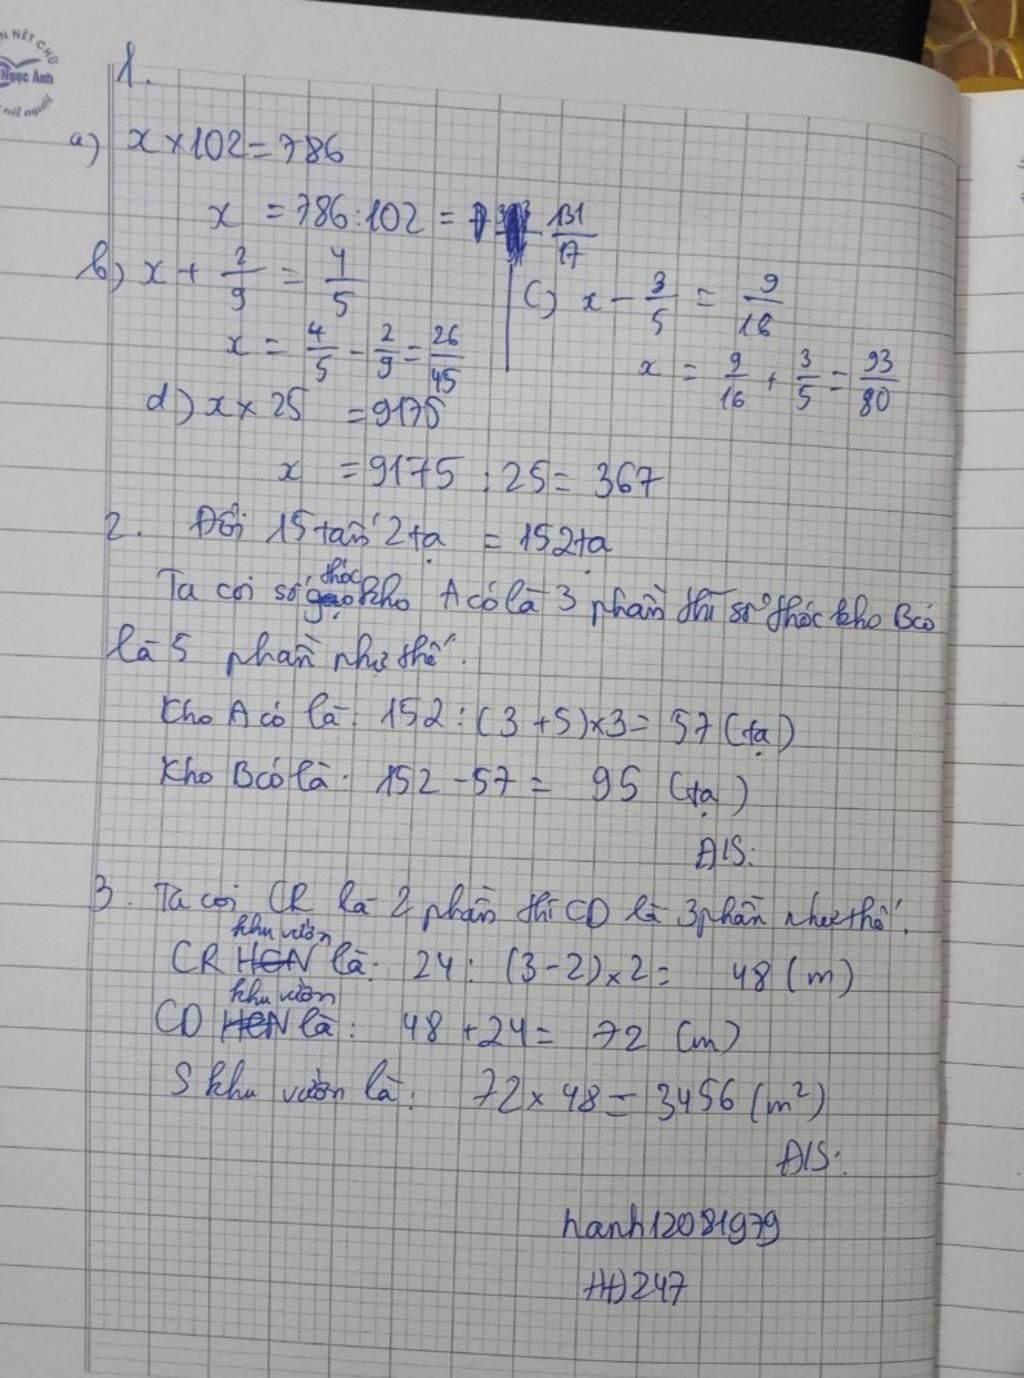 N NÉT CHỮ
Ngọc Ánh
nét người
1.
a) x × 102 = 786
x = 786 : 102 = 131/17
b) x + 2/9 = 4/5
x = 4/5 - 2/9 = 26/45
c) x - 3/5 = 9/16
x = 9/16 + 3/5 = 93/80
d) x × 25 = 9175
x = 9175 : 25 = 367
2. Đổi 15 tấn 2 tạ = 152 tạ
Ta coi số thóc kho A có là 3 phần thì số thóc kho B có
là 5 phần như thế.
Kho A có là: 152 : (3 + 5) × 3 = 57 (tạ)
Kho B có là: 152 - 57 = 95 (tạ)
Đ/S:
3. Ta coi CR là 2 phần thì CD là 3 phần như thế.
CR khu vườn là: 24 : (3 - 2) × 2 = 48 (m)
CD khu vườn là: 48 + 24 = 72 (m)
S khu vườn là: 72 × 48 = 3456 (m²)
Đ/S:
hanh12081979
HĐ247